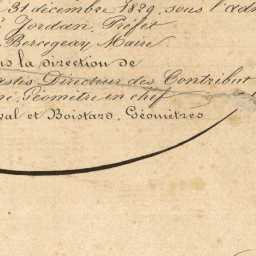 31 décembre 1829, sous l'ad
Jordan, Préfet
Bercegeay, Maire
s la direction de
Directeur des Contribut
Géomètre en chef
val et Boistard, Géomètres